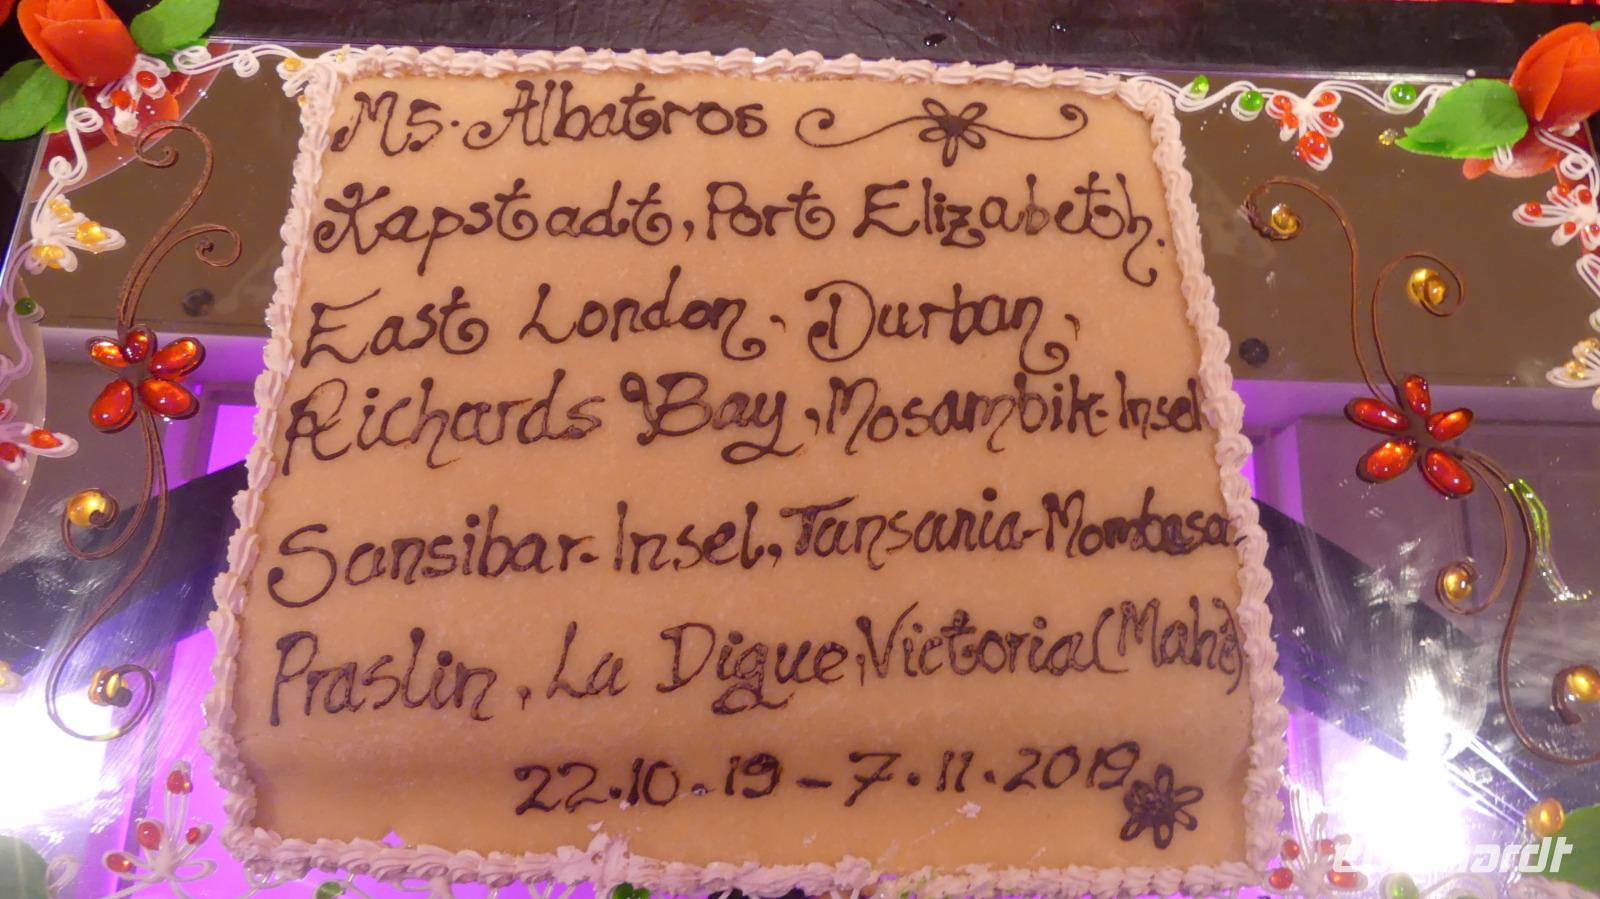 MS. Albatros
Kapstadt, Port Elizabeth.
East London, Durban,
Richards Bay, Mosambik-Insel
Sansibar-Insel, Tansania-Mombasa.
Praslin, La Digue, Victoria (Mahé)
22.10.19 – 7.11.2019
eberhardt